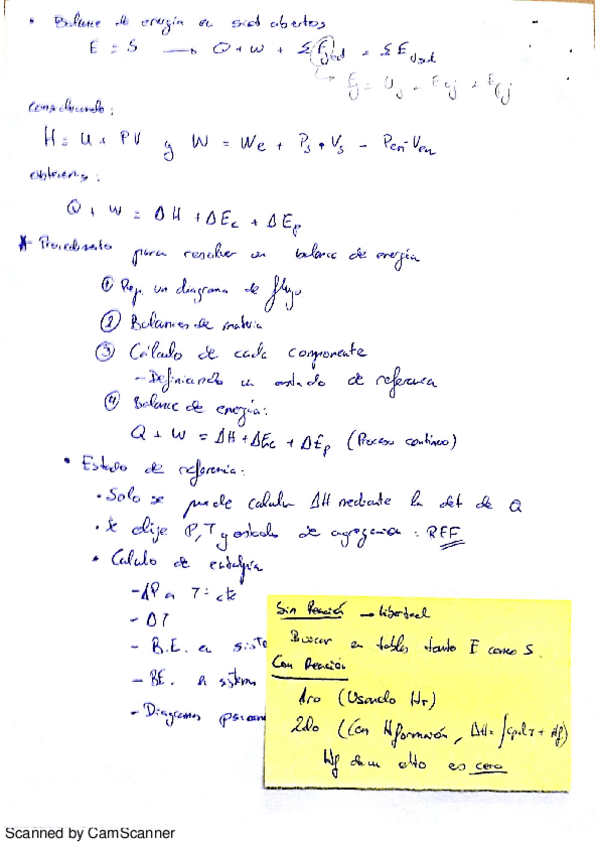 • Balance de energía en sist abiertos
E = S → Q + W + Σ Ej = Σ E
Ej = Uj + Ecj + Epj
considerando:
H = U + PV y W = We + Ps · Vs - Pen · Ven
obtenemos:
Q + W = ΔH + ΔEc + ΔEp
Procedimiento para resolver un balance de energía
① Rep. un diagrama de flujo
② Balances de materia
③ Cálculo de cada componente
- Definiendo un estado de referencia
④ Balance de energía:
Q + W = ΔH + ΔEc + ΔEp (Proceso continuo)
• Estado de referencia:
• Solo se puede calcular ΔH mediante la det de Q
• Se elije P, T y estado de agregación: REF
• Calculo de entalpia
- ΔP a T = cte
- ΔT
- B.E. en siste
- BE. en sistem
- Diagramas psicom
Sin Reacción → libertad
Buscar en tablas tanto E como S.
Con Reacción
1ro (Usando Hr)
2do (Con Hformación, ΔH = ∫cpdT + Hf)
Hf de un elto es cero
Scanned by CamScanner